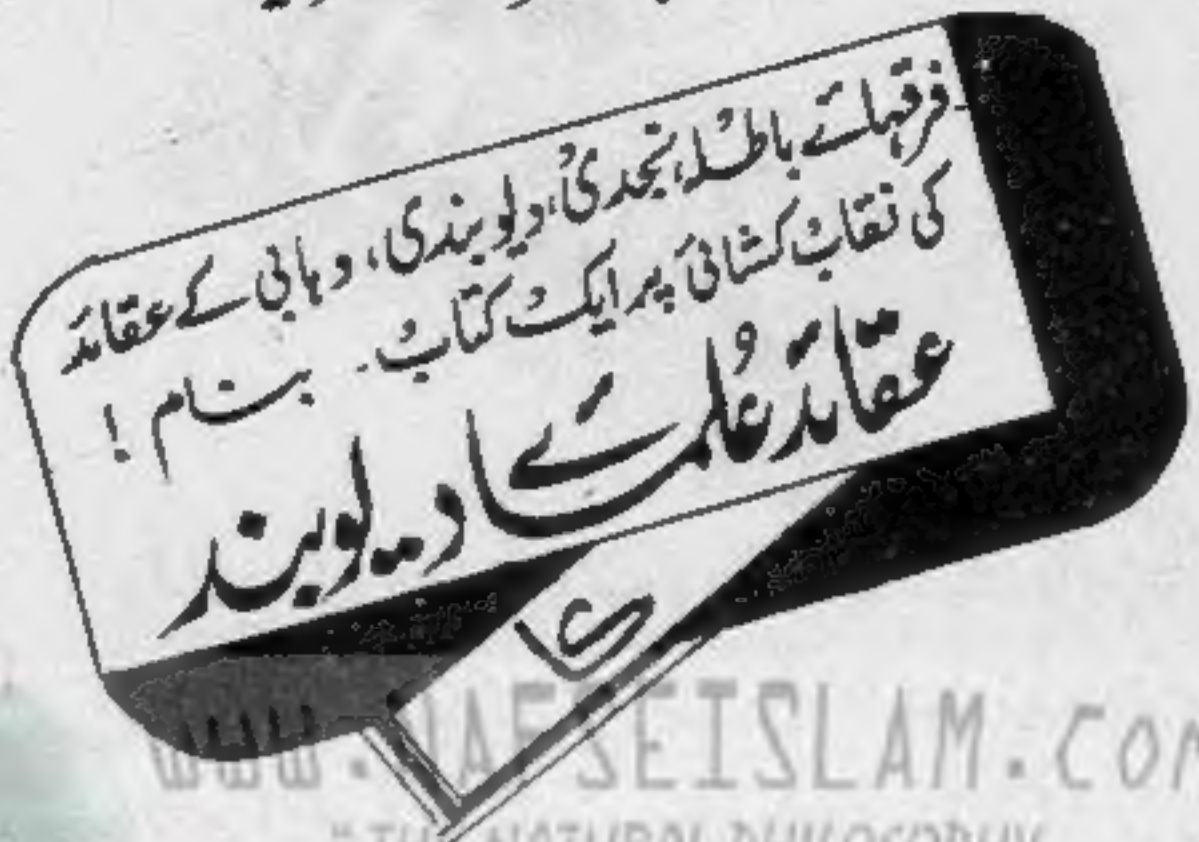 فرقہائے باطلہ، نجدی، دیوبندی، وہابی کے عقائد
کی نقاب کشائی پر ایک کتاب۔ بنام !
عقائد علمائے دیوبند
کا
WWW.NAFSEISLAM.COM
"THE NATURAL PHILOSOPHY